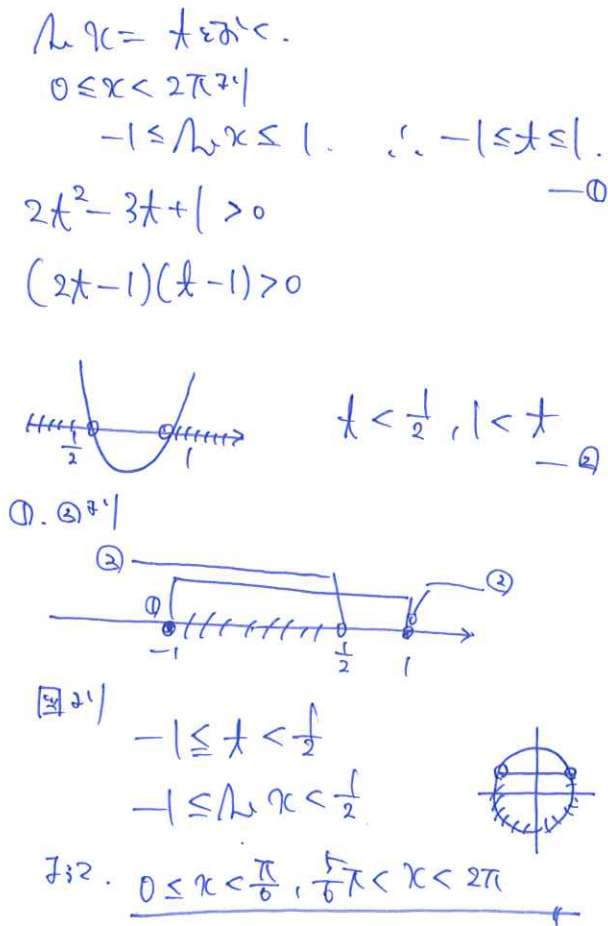 sin x = t とおく.
0 ≦ x < 2π より
-1 ≦ sin x ≦ 1. ∴ -1 ≦ t ≦ 1.
—①
2t² - 3t + 1 > 0
(2t-1)(t-1) > 0
1/2 1
t < 1/2, 1 < t
—②
①. ②より
② ① ②
-1 1/2 1
図より
-1 ≦ t < 1/2
-1 ≦ sin x < 1/2
よって. 0 ≦ x < π/6, 5/6π < x < 2π